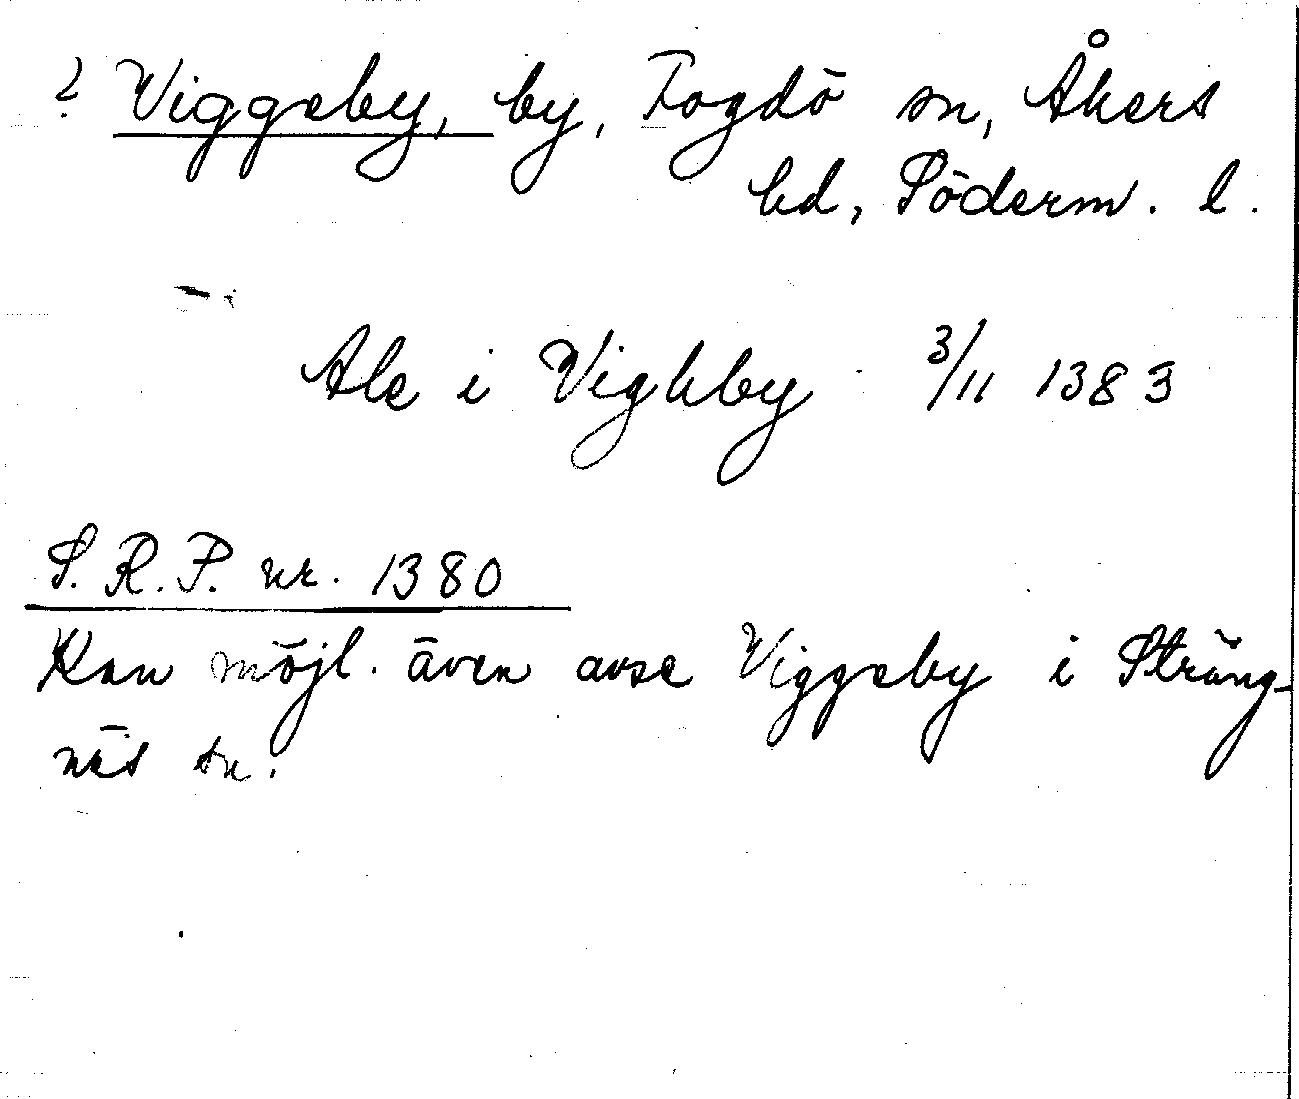 ? Viggeby, by, Fogdö sn, Åkers
hd, Söderm. l.
Ale i Vighby 3/11 1383
S. R. P. nr. 1380
Kan möjl. även avse Viggeby i Sträng-
näs sn.